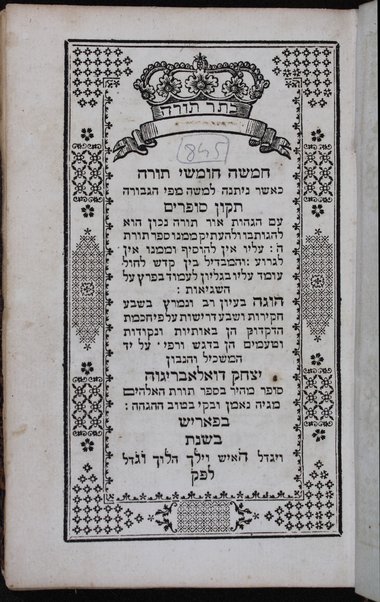 כתר תורה
845
חמשה חומשי תורה
כאשר ניתנה למשה מפי הגבורה
תקון סופרים
עם הגהות אור תורה נכון הוא
להגות בו ולהעתיק ממנו ספר תורת
ה׃ עליו אין להוסיף וממנו אין
לגרוע׃ והמבדיל בין קדש לחול
עומד עליו בגליון לעמוד בפרץ על
השגיאות׃
הוגה בעיון רב ונמרץ בשבע
חקירות ושבע דרישות על פי חכמת
הדקדוק הן באותיות ונקודות
וטעמים הן בדגש ורפי׳ על יד
המשכיל והנבון
יצחק דואלאבריגוה
סופר מהיר בספר תורת האלהים
מגיה נאמן ובקי בטוב ההגהה׃
בפאריש
בשנת
ויגדל האיש וילך הלוך וגדל
לפק